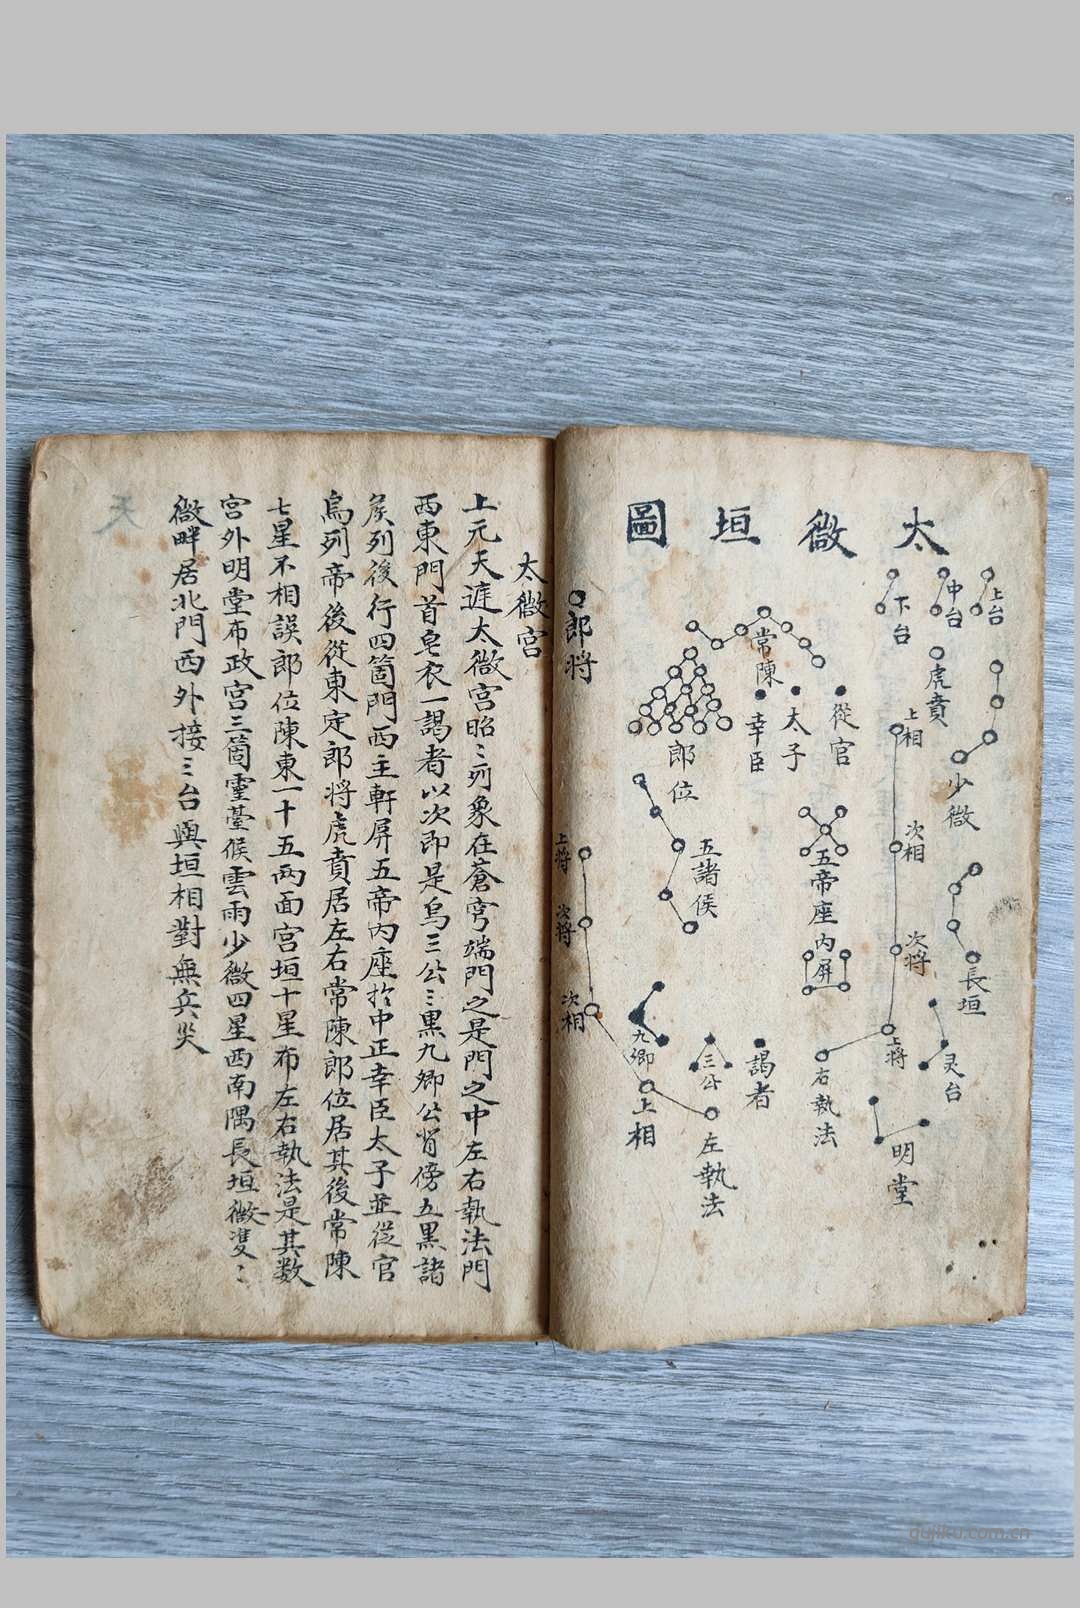 太微垣圖
上台
中台
下台
虎賁
少微
長垣
灵台
明堂
上相
次相
次将
上将
右執法
從官
太子
幸臣
常陳
郎位
五帝座
内屏
五諸侯
謁者
三公
九卿
左執法
上相
次相
次将
上将
郎将
太微宫
上元天遲太微宫昭〻列象在蒼穹端門之是門之中左右執法門
西東門首皂衣一謁者以次即是烏三公三黑九卿公背傍五黑諸
侯列後行四箇門西主軒屏五帝内座於中正幸臣太子並從官
烏列帝後從東定郎将虎賁居左右常陳郎位居其後常陳
七星不相誤郎位陳東一十五兩面宫垣十星布左右執法是其数
宫外明堂布政宫三箇靈臺候雲雨少微四星西南隅長垣微雙〻
微畔居北門西外接三台與垣相對無兵災
天
gujiku.com.cn